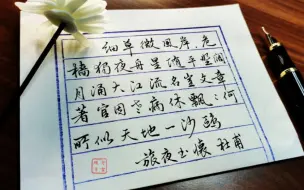 细草微風岸危
樯独夜舟星垂平野阔
月涌大江流名岂文章
著官因老病休飘飘何
所似天地一沙鸥
旅夜书怀 杜甫